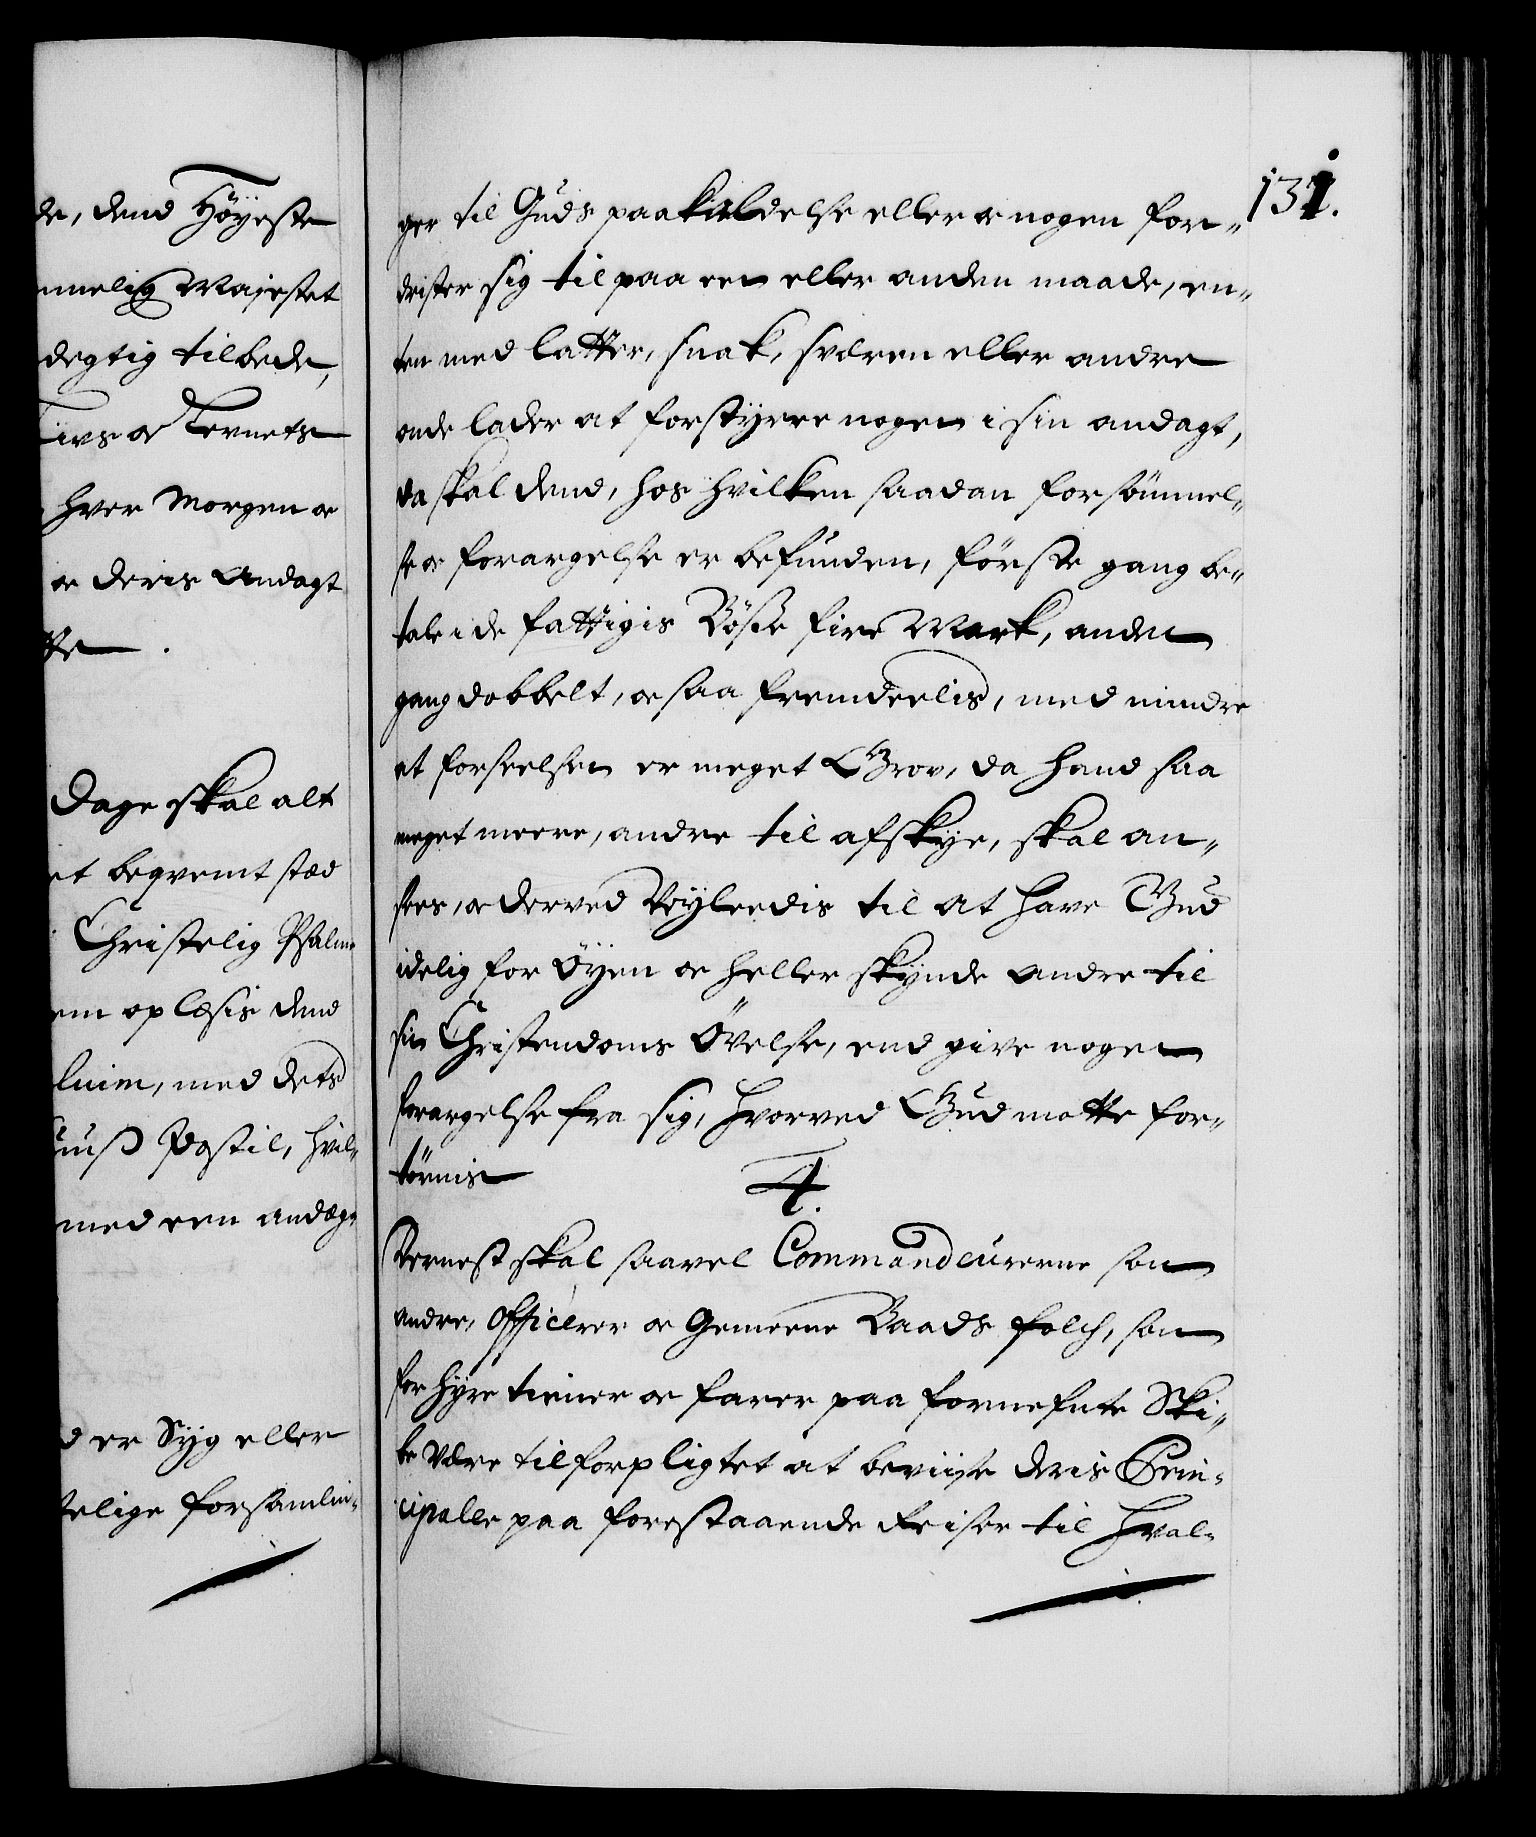 de, dend Høyeste
mmelig Majestet
degtig tilbede,
Livs oc Levnets
hver Morgen oc
oc deris Andagt
tte.
Dage skal alt
et beqvemt stæd
Christelig Psalme
em oplæsis dend
luim, med dets
Postil, hvil-
med een andæg-
d er Syg eller
telige forsamlin-
131.
ger til Guds paakaldelse eller oc nogen for-
drister sig til paa een eller anden maade, en-
ten med latter, snak, sværen eller andre
onde lader at forstyrre nogen i sin andagt,
da skal dend, hos hvilken saadan forsømmel-
se oc forargelse er befunden, første gang be-
tale i de fattigis Bøsse fire Mark, anden
gang dobbelt, oc saa fremdeelis, med mindre
at forseelsen er meget Grov, da hand saa
meget meere, andre til afskye, skal an-
sees, oc derved Veyleedis til at have Gud
idelig for Øyen oc heller skynde andre til
sin Christendoms Øvelse, end give nogen
forargelse fra sig, hvorved Gud motte for-
tørnis
4.
Dernest skal saavel Commandeurerne som
andre, Officerer oc Gemeene Baads folch, som
for hyre tiener oc farer paa fornefnte Ski-
be være tilforpligtet at beviise deris Prin-
cipaler paa forestaaende Reiser til Hval-